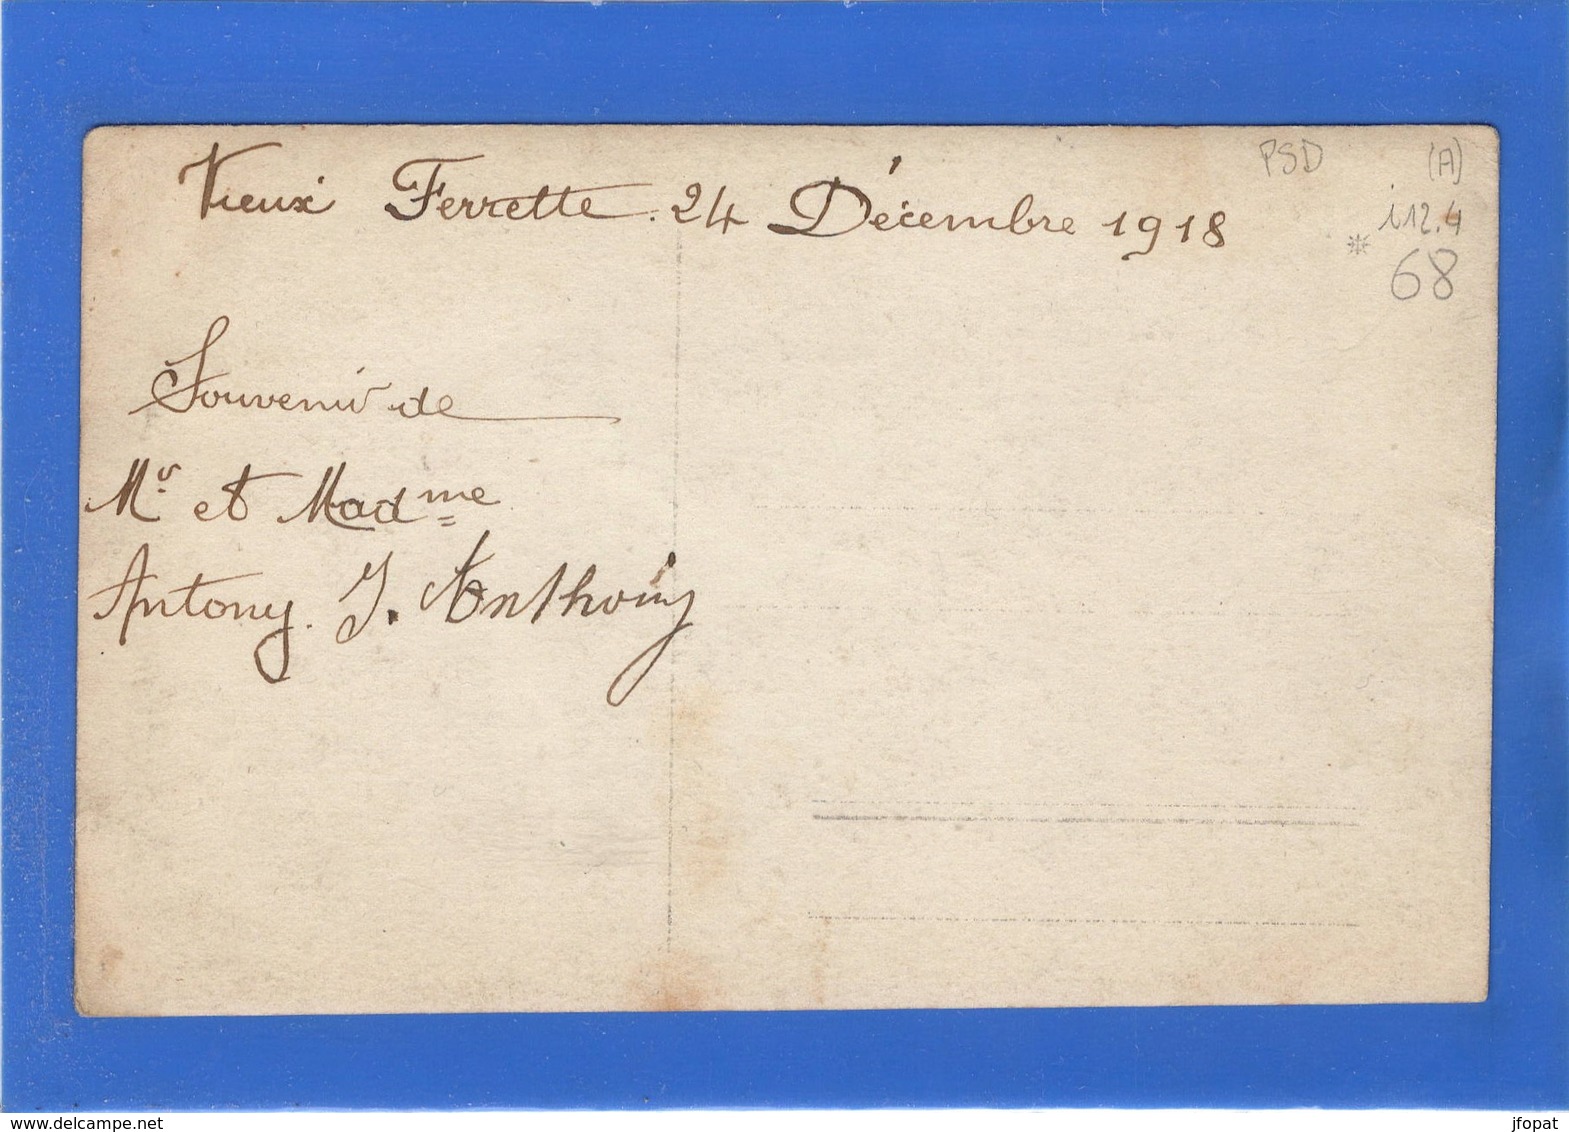 Vieux Ferrette. 24 Décembre 1918
PSD
(A)
i12.4
68
Souvenir de
Mr et Madme
Antony. J. Anthoiny
www.delcampe.net
jfopat